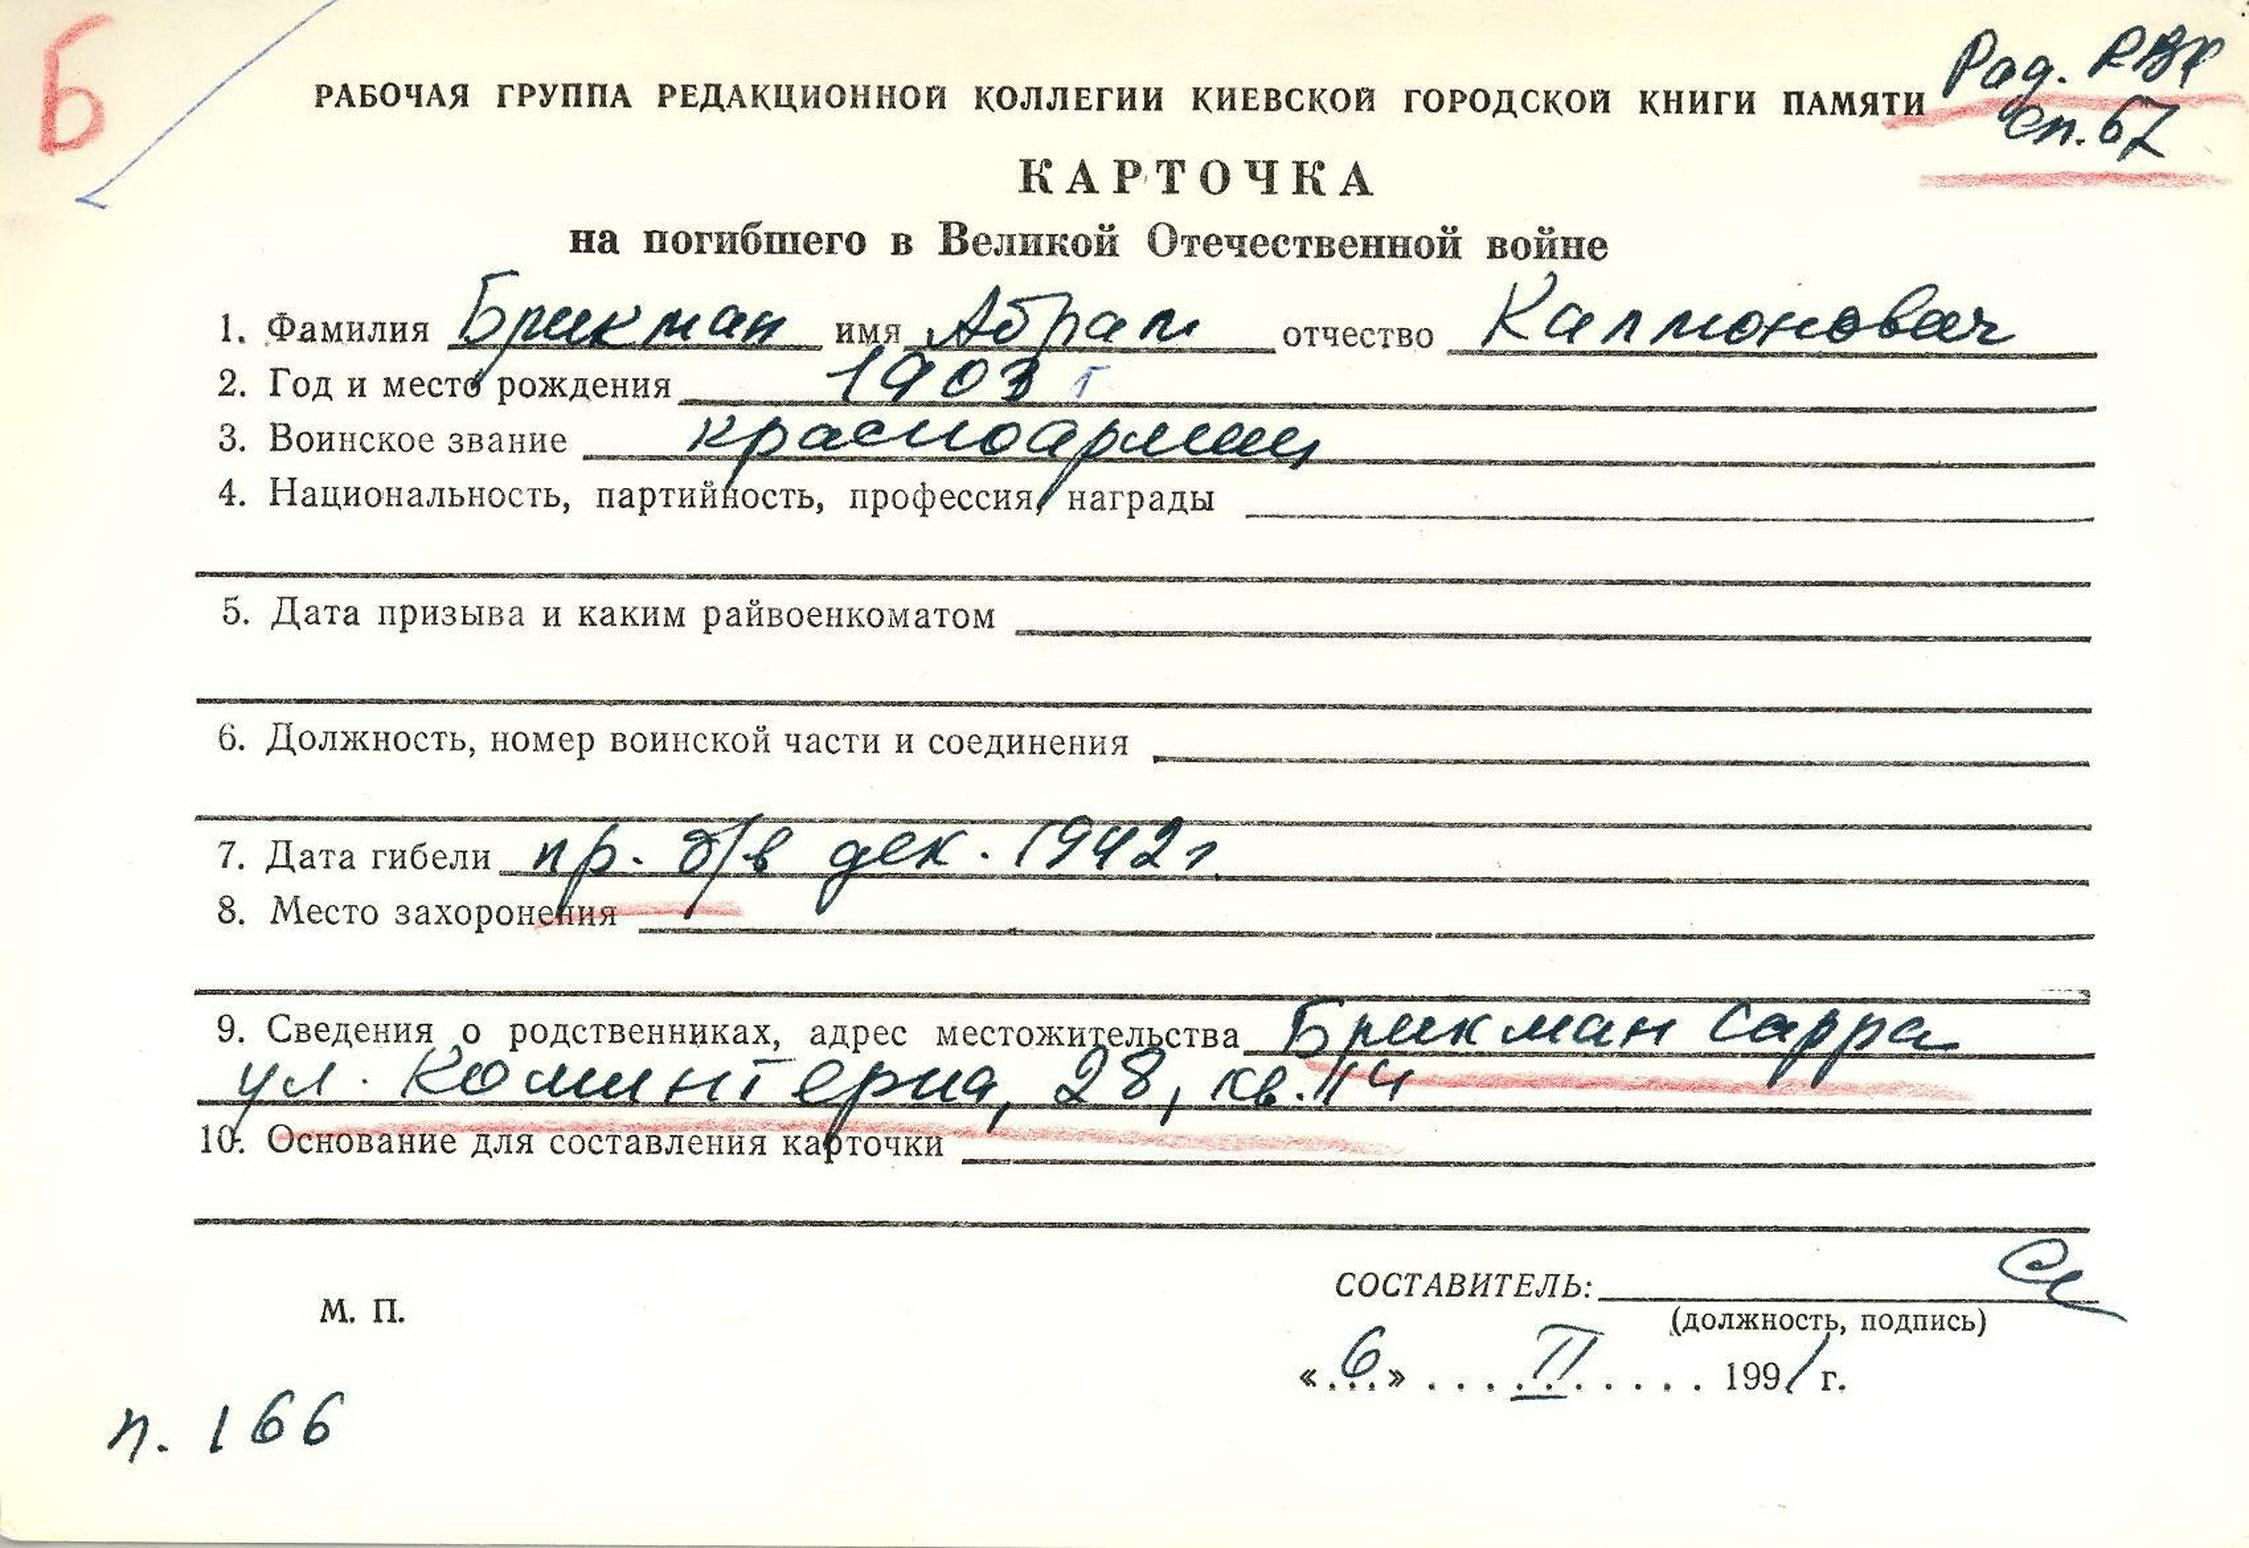 Б
Рад. РВК
РАБОЧАЯ ГРУППА РЕДАКЦИОННОЙ КОЛЛЕГИИ КИЕВСКОЙ ГОРОДСКОЙ КНИГИ ПАМЯТИ
сп. 67
КАРТОЧКА
на погибшего в Великой Отечественной войне
1. Фамилия Брикман имя Абрам отчество Калмонович
2. Год и место рождения 1903 г
3. Воинское звание красноармеец
4. Национальность, партийность, профессия, награды
5. Дата призыва и каким райвоенкоматом
6. Должность, номер воинской части и соединения
7. Дата гибели пр. б/в дек. 1942 г.
8. Место захоронения
9. Сведения о родственниках, адрес местожительства Брикман Сарра
ул. Коминтерна, 28, кв. 14
10. Основание для составления карточки
СОСТАВИТЕЛЬ:
М. П.
(должность, подпись)
«6» II 1991 г.
п. 166